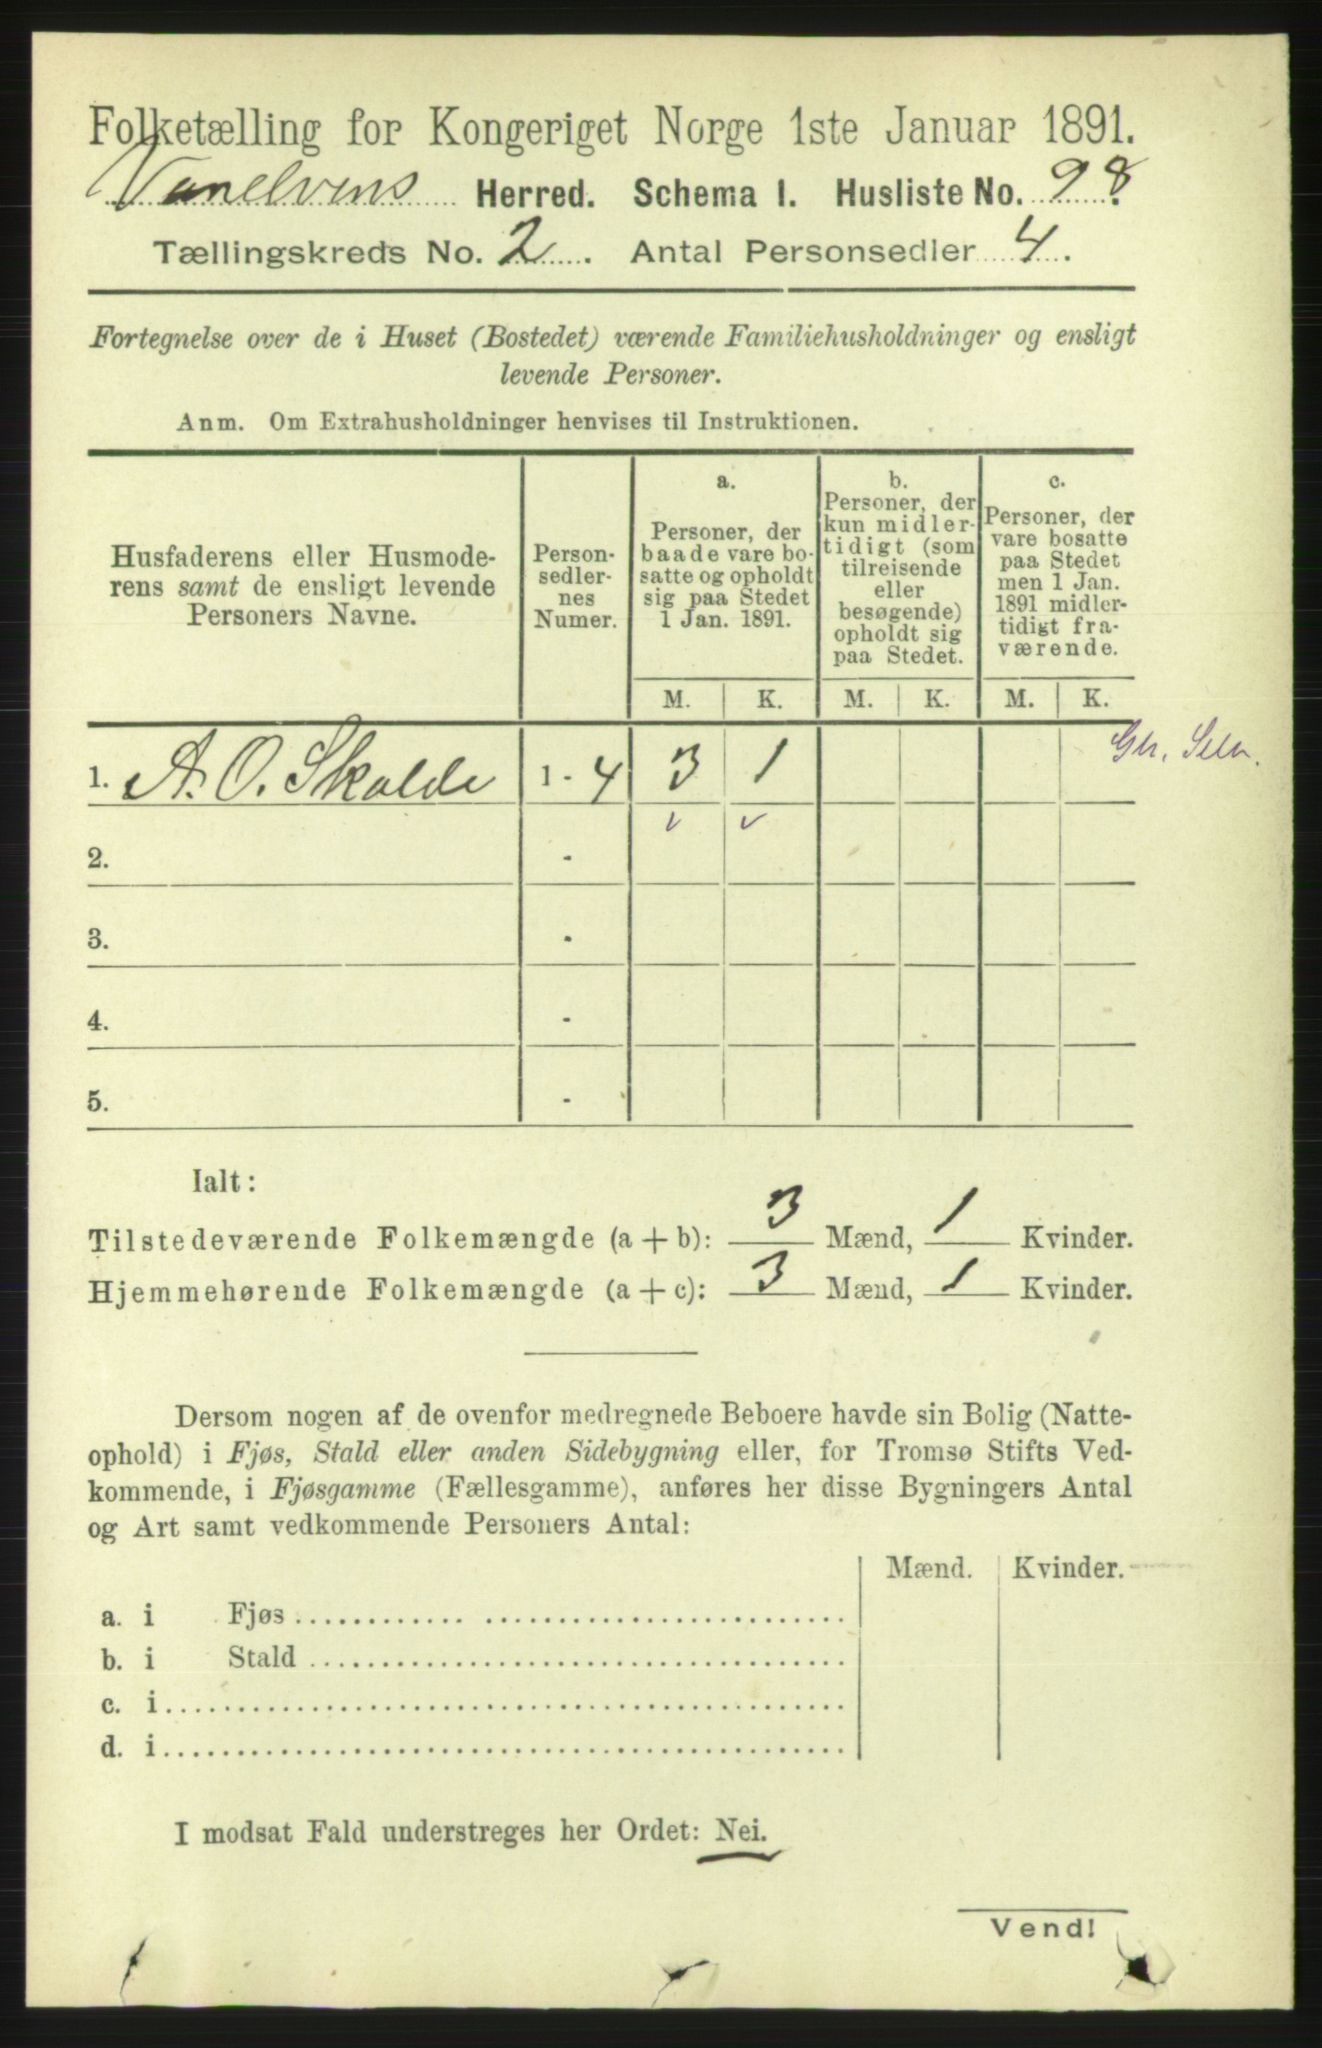 Folketælling for Kongeriget Norge 1ste Januar 1891.
Vanelvens Herred. Schema I. Husliste No. 98.
Tællingskreds No. 2. Antal Personsedler 4.
Fortegnelse over de i Huset (Bostedet) værende Familiehusholdninger og ensligt
levende Personer.
Anm. Om Extrahusholdninger henvises til Instruktionen.
Husfaderens eller Husmode-
rens samt de ensligt levende
Personers Navne.
Person-
sedler-
nes
Numer.
a.
Personer, der
baade vare bo-
satte og opholdt
sig paa Stedet
1 Jan. 1891.
b.
Personer, der
kun midler-
tidigt (som
tilreisende
eller
besøgende)
opholdt sig
paa Stedet.
c.
Personer, der
vare bosatte
paa Stedet
men 1 Jan.
1891 midler-
tidigt fra-
værende.
M. K. M. K. M. K.
1. A. O. Skalde 1 - 4 3 1
2. -
3. -
4. -
5. -
Ialt:
Tilstedeværende Folkemængde (a + b): 3 Mænd, 1 Kvinder.
Hjemmehørende Folkemængde (a + c): 3 Mænd, 1 Kvinder.
Dersom nogen af de ovenfor medregnede Beboere havde sin Bolig (Natte-
ophold) i Fjøs, Stald eller anden Sidebygning eller, for Tromsø Stifts Ved-
kommende, i Fjøsgamme (Fællesgamme), anføres her disse Bygningers Antal
og Art samt vedkommende Personers Antal:
Mænd. Kvinder.
a. i Fjøs
b. i Stald
c. i
d. i
I modsat Fald understreges her Ordet: Nei.
Vend!